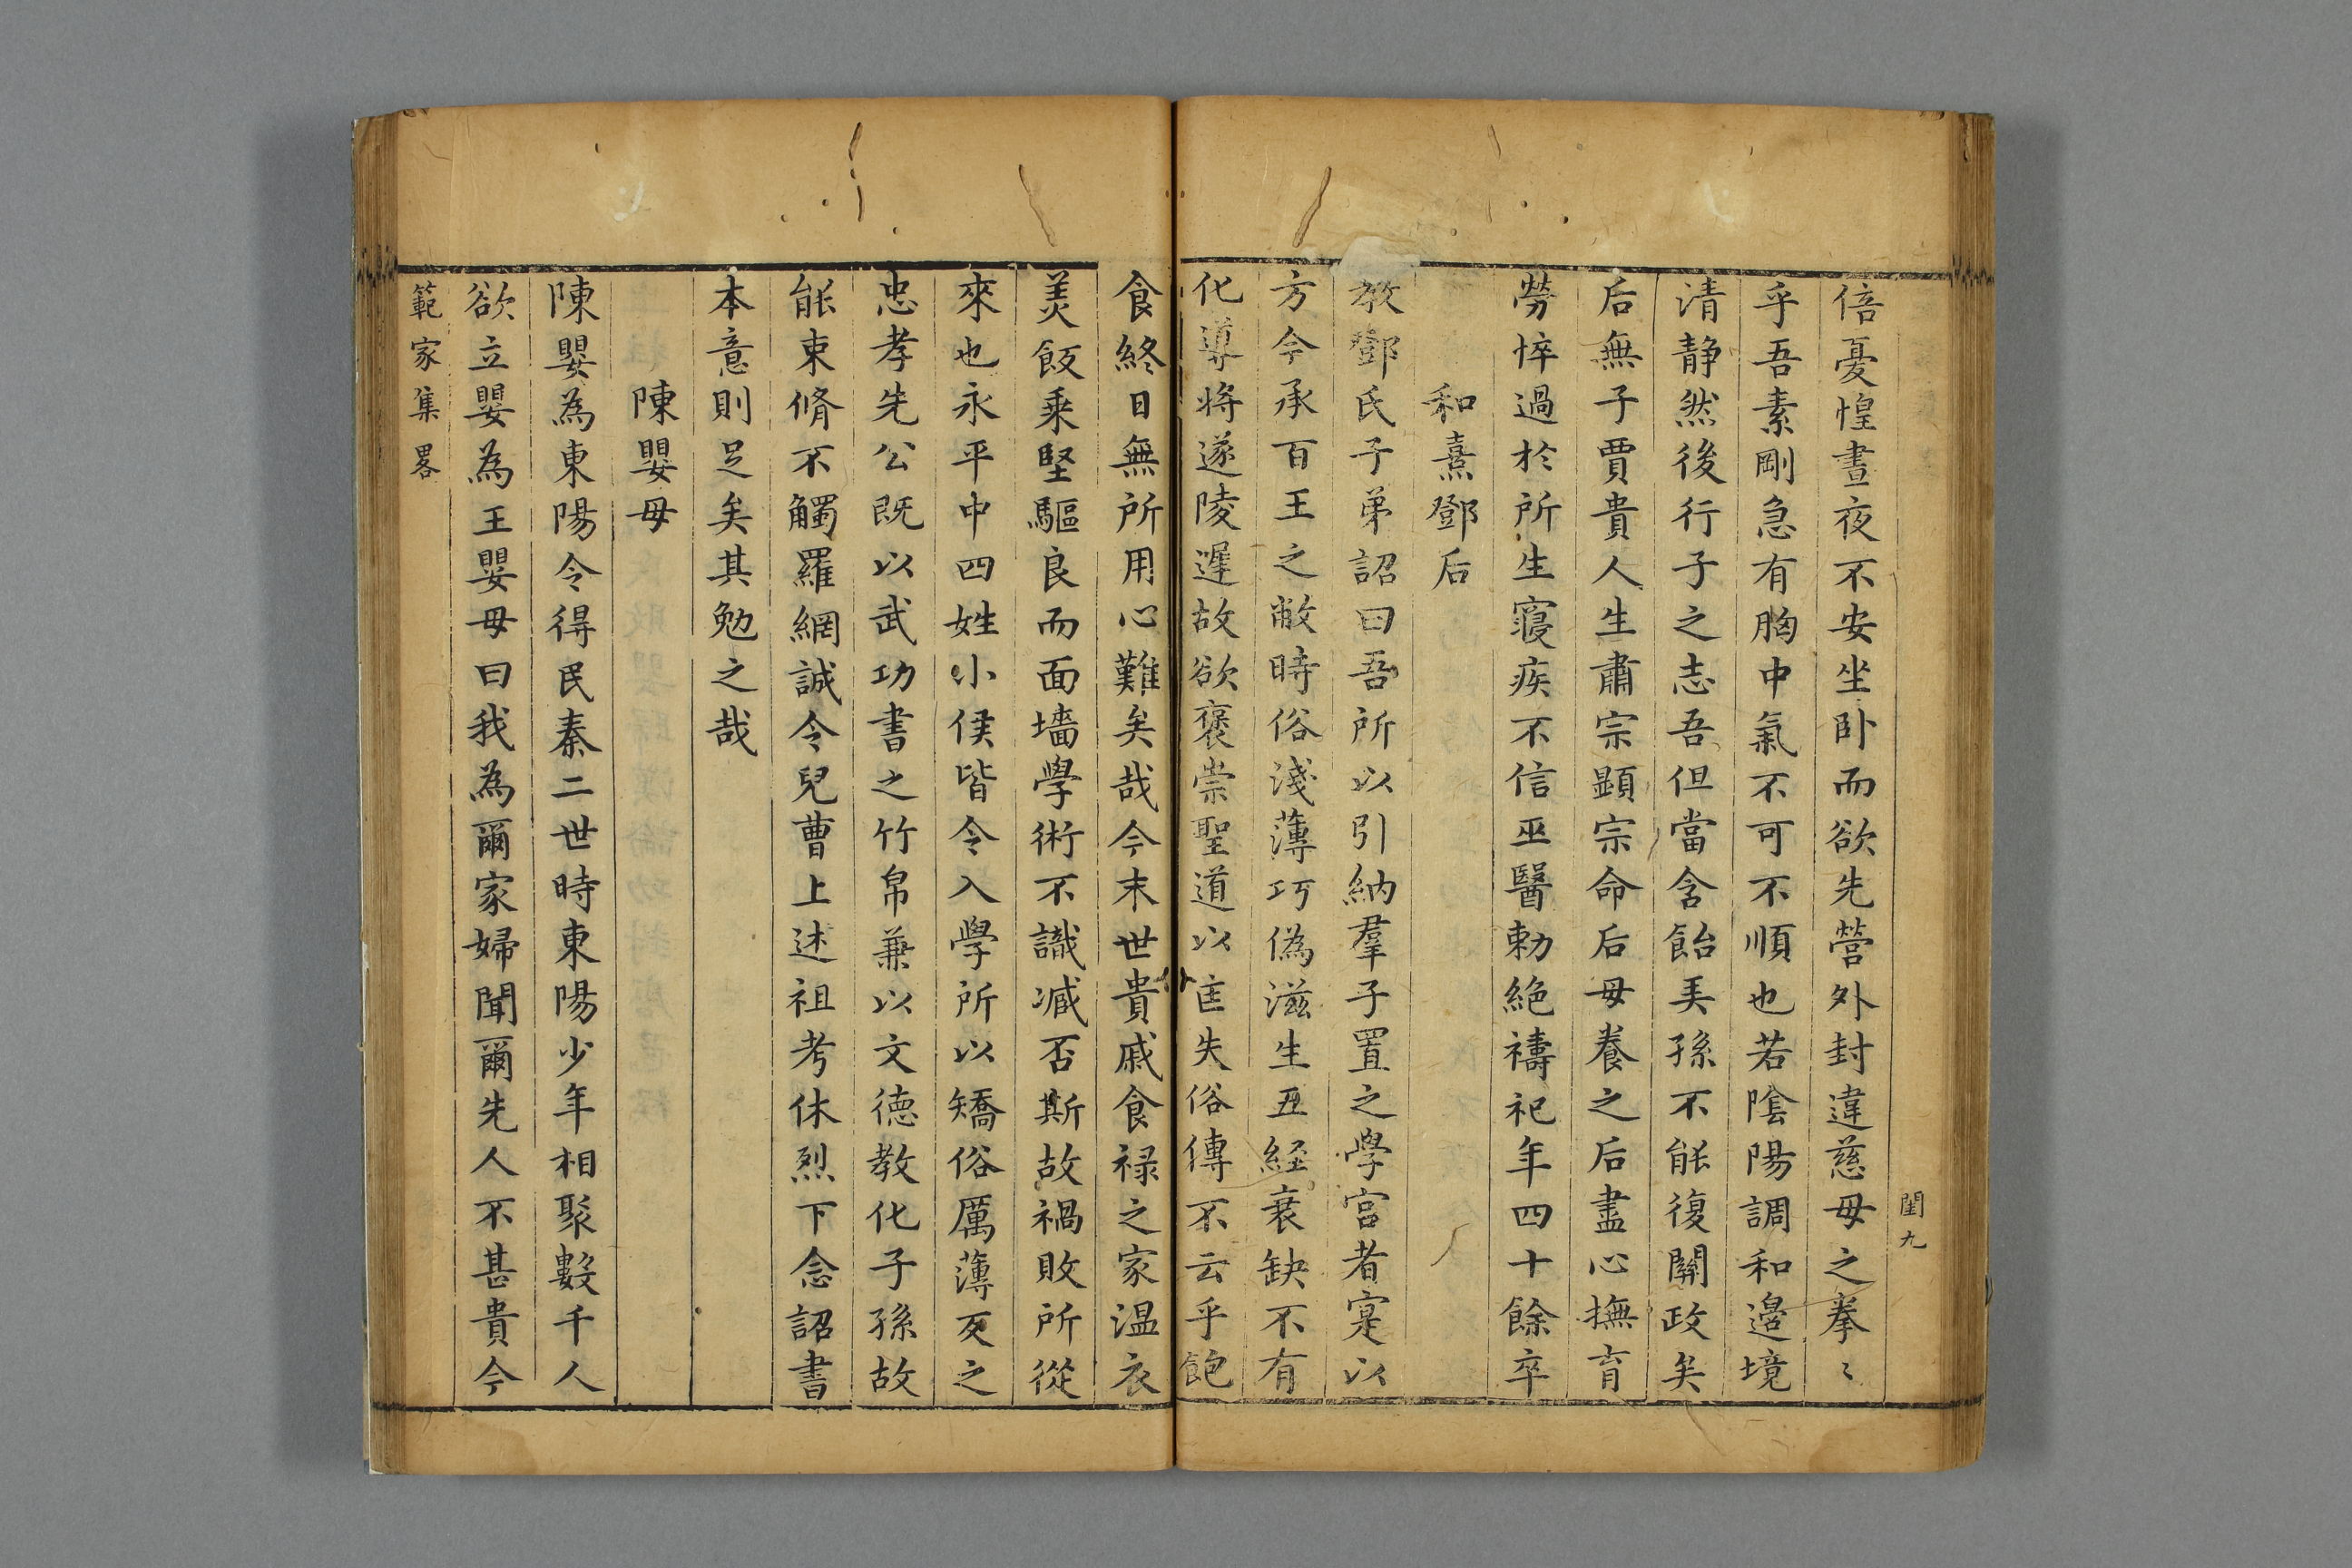 閨九
倍憂惶晝夜不安坐卧而欲先營外封違慈母之拳〻
乎吾素剛急有胸中氣不可不順也若陰陽調和邉境
清静然後行子之志吾但當含飴弄孫不能復關政矣
后無子賈貴人生肅宗顕宗命后母養之后盡心撫育
勞悴過於所生寢疾不信巫醫勅絶禱祀年四十餘卒
和熹鄧后
教鄧氏子弟詔曰吾所以引納羣子置之學宫者寔以
方今承百王之敝時俗淺薄巧偽滋生五経衰缺不有
化導将遂陵遲故欲褒崇聖道以匡失俗傳不云乎飽
食終日無所用心難矣哉今末世貴戚食禄之家温衣
美飯乘堅驅良而面墻學術不識臧否斯故禍敗所從
來也永平中四姓小侯皆令入學所以矯俗厲薄反之
忠孝先公既以武功書之竹帛兼以文德教化子孫故
能束脩不觸羅網誠令兒曹上述祖考休烈下念詔書
本意則足矣其勉之哉
陳嬰母
陳嬰為東陽令得民秦二世時東陽少年相聚數千人
欲立嬰為王嬰母曰我為爾家婦聞爾先人不甚貴今
範家集畧